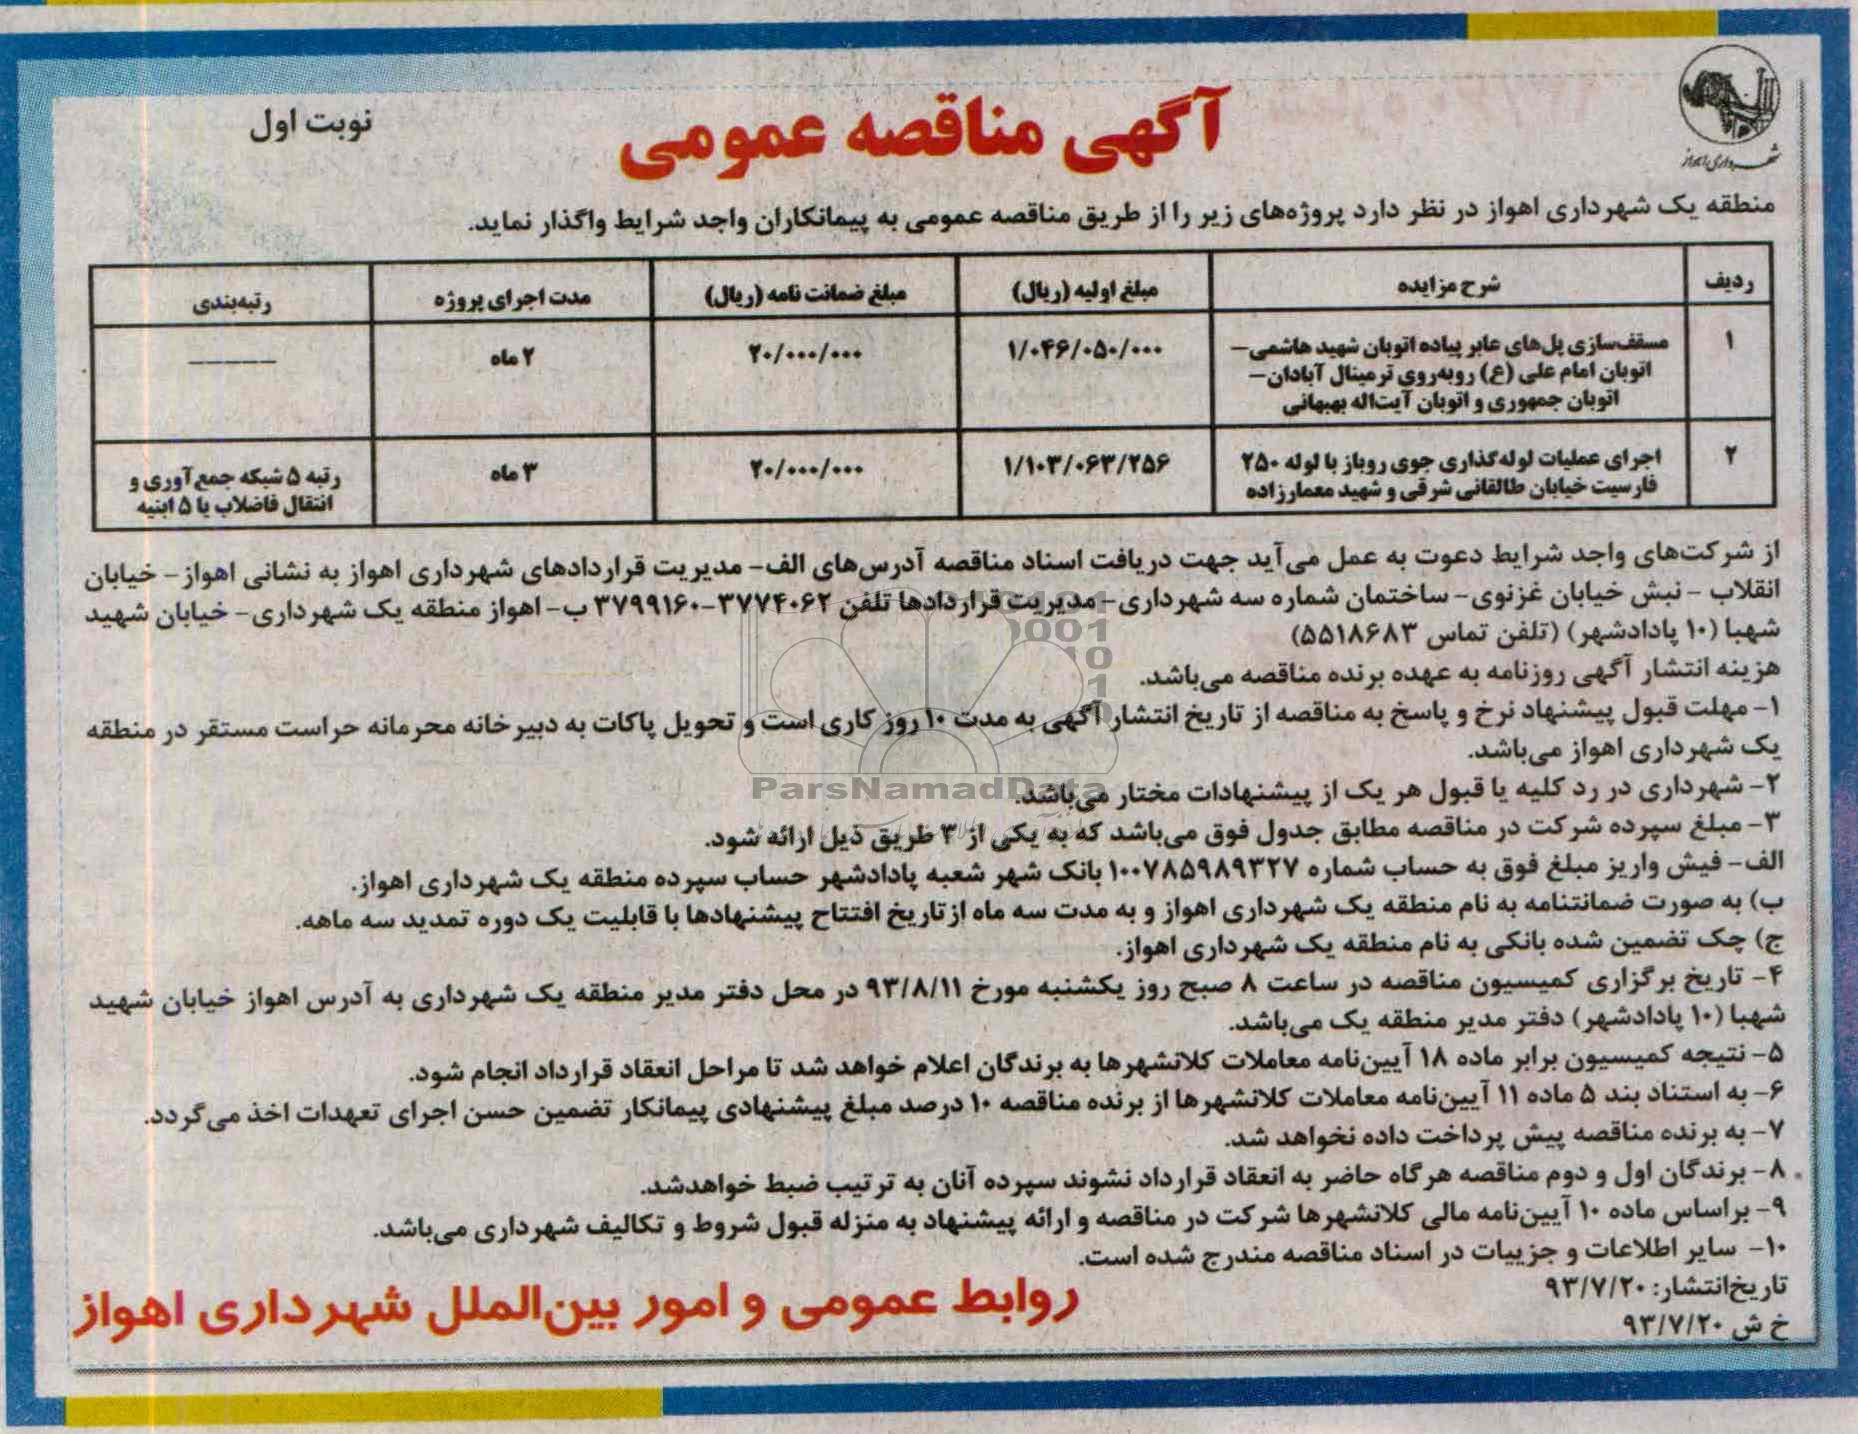 شهرداری اهواز
آگهی مناقصه عمومی
نوبت اول
منطقه یک شهرداری اهواز در نظر دارد پروژه‌های زیر را از طریق مناقصه عمومی به پیمانکاران واجد شرایط واگذار نماید.
ردیف	شرح مزایده	مبلغ اولیه (ریال)	مبلغ ضمانت نامه (ریال)	مدت اجرای پروژه	رتبه‌بندی
۱	مسقف‌سازی پل‌های عابر پیاده اتوبان شهید هاشمی–	۱/۰۴۶/۰۵۰/۰۰۰	۲۰/۰۰۰/۰۰۰	۲ ماه	–––––
اتوبان امام علی (ع) روبه‌روی ترمینال آبادان–
اتوبان جمهوری و اتوبان آیت‌اله بهبهانی
۲	اجرای عملیات لوله‌گذاری جوی روباز با لوله ۲۵۰	۱/۱۰۳/۰۶۳/۲۵۶	۲۰/۰۰۰/۰۰۰	۳ ماه	رتبه ۵ شبکه جمع‌آوری و
فارسیت خیابان طالقانی شرقی و شهید معمارزاده	انتقال فاضلاب یا ۵ ابنیه
از شرکت‌های واجد شرایط دعوت به عمل می‌آید جهت دریافت اسناد مناقصه آدرس‌های الف– مدیریت قراردادهای شهرداری اهواز به نشانی اهواز– خیابان
انقلاب – نبش خیابان غزنوی– ساختمان شماره سه شهرداری– مدیریت قراردادها تلفن ۳۷۷۴۰۶۲–۳۷۹۹۱۶۰ ب– اهواز منطقه یک شهرداری– خیابان شهید
شهبا (۱۰ پادادشهر) (تلفن تماس ۵۵۱۸۶۸۳)
هزینه انتشار آگهی روزنامه به عهده برنده مناقصه می‌باشد.
۱– مهلت قبول پیشنهاد نرخ و پاسخ به مناقصه از تاریخ انتشار آگهی به مدت ۱۰ روز کاری است و تحویل پاکات به دبیرخانه محرمانه حراست مستقر در منطقه
یک شهرداری اهواز می‌باشد.
۲– شهرداری در رد کلیه یا قبول هر یک از پیشنهادات مختار می‌باشد.
۳– مبلغ سپرده شرکت در مناقصه مطابق جدول فوق می‌باشد که به یکی از ۳ طریق ذیل ارائه شود.
الف– فیش واریز مبلغ فوق به حساب شماره ۱۰۰۷۸۵۹۸۹۳۲۷ بانک شهر شعبه پادادشهر حساب سپرده منطقه یک شهرداری اهواز.
ب) به صورت ضمانتنامه به نام منطقه یک شهرداری اهواز و به مدت سه ماه از تاریخ افتتاح پیشنهادها با قابلیت یک دوره تمدید سه ماهه.
ج) چک تضمین شده بانکی به نام منطقه یک شهرداری اهواز.
۴– تاریخ برگزاری کمیسیون مناقصه در ساعت ۸ صبح روز یکشنبه مورخ ۹۳/۸/۱۱ در محل دفتر مدیر منطقه یک شهرداری به آدرس اهواز خیابان شهید
شهبا (۱۰ پادادشهر) دفتر مدیر منطقه یک می‌باشد.
۵– نتیجه کمیسیون برابر ماده ۱۸ آیین‌نامه معاملات کلانشهرها به برندگان اعلام خواهد شد تا مراحل انعقاد قرارداد انجام شود.
۶– به استناد بند ۵ ماده ۱۱ آیین‌نامه معاملات کلانشهرها از برنده مناقصه ۱۰ درصد مبلغ پیشنهادی پیمانکار تضمین حسن اجرای تعهدات اخذ می‌گردد.
۷– به برنده مناقصه پیش پرداخت داده نخواهد شد.
۸– برندگان اول و دوم مناقصه هرگاه حاضر به انعقاد قرارداد نشوند سپرده آنان به ترتیب ضبط خواهدشد.
۹– براساس ماده ۱۰ آیین‌نامه مالی کلانشهرها شرکت در مناقصه و ارائه پیشنهاد به منزله قبول شروط و تکالیف شهرداری می‌باشد.
۱۰– سایر اطلاعات و جزییات در اسناد مناقصه مندرج شده است.
تاریخ‌انتشار: ۹۳/۷/۲۰
خ ش ۹۳/۷/۲۰
روابط عمومی و امور بین‌الملل شهرداری اهواز
ParsNamadData